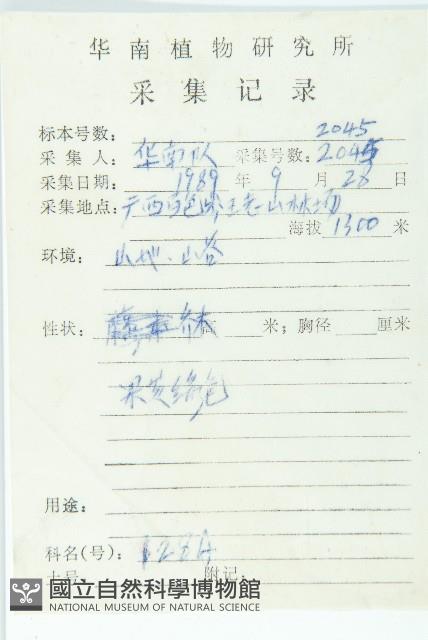 华南植物研究所
采集记录
2045
标本号数:
采集人: 华南队 采集号数: 2045
采集日期: 1989年9月28日
采集地点: 广西 王老山林场
海拔 1300 米
环境: 山地、山谷
性状: 乔木 米; 胸径 厘米
果黄绿色
用途:
科名(号):
土名: 附记:
國立自然科學博物館
NATIONAL MUSEUM OF NATURAL SCIENCE